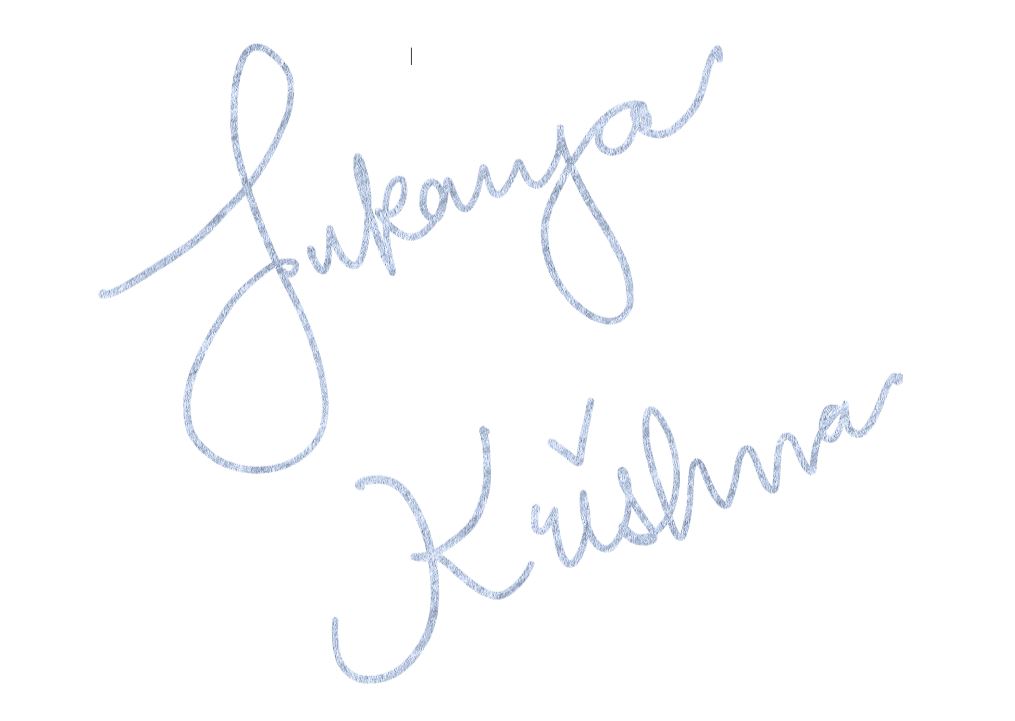 Sukanya
Krishna